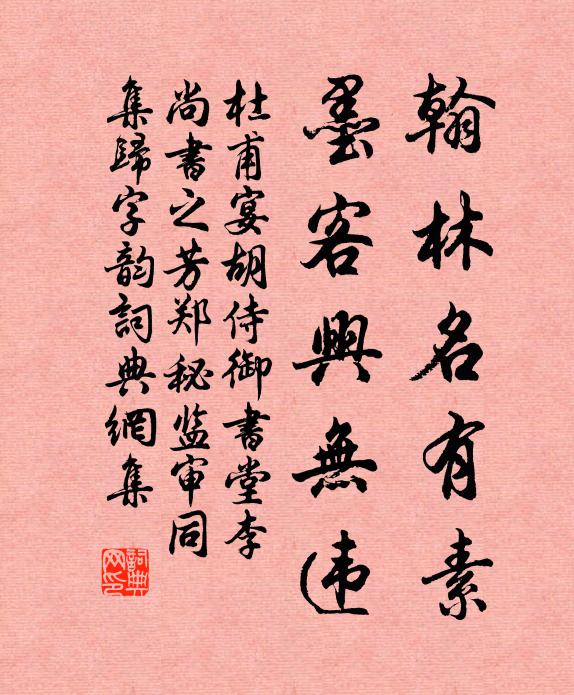 翰林名有素
墨客興無违
杜甫宴胡侍御書堂李
尚書之芳郑秘监审同
集歸字韵詞典網集
詞典网印